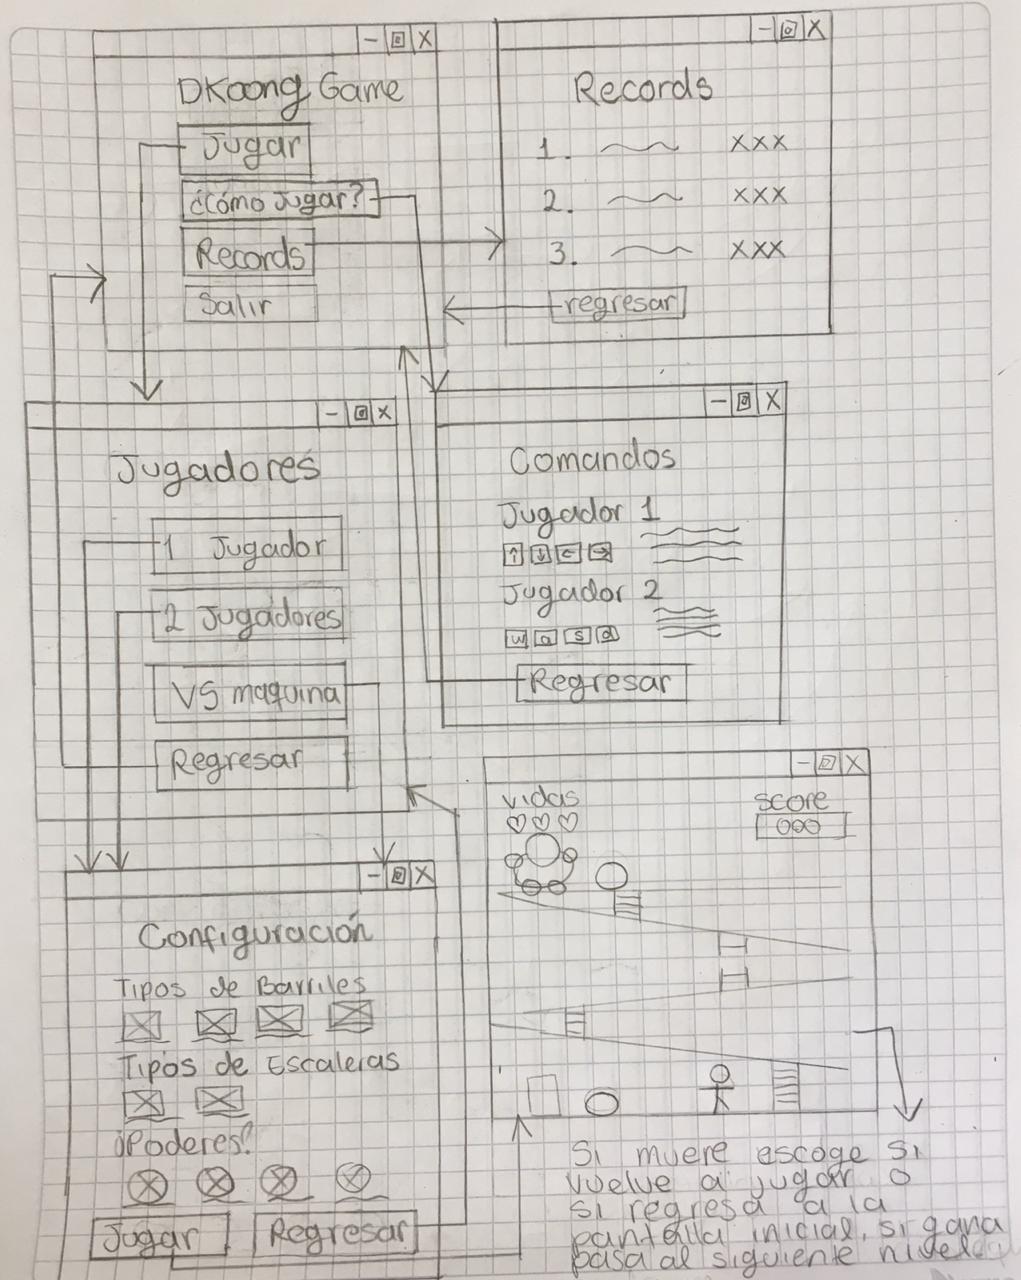 DKoong Game
Jugar
¿Cómo Jugar?
Records
Salir
Records
1. xxx
2. xxx
3. xxx
regresar
Jugadores
1 Jugador
2 Jugadores
VS maquina
Regresar
Comandos
Jugador 1
↑ ↓ ← →
Jugador 2
w a s d
Regresar
Configuración
Tipos de Barriles
Tipos de Escaleras
¿Poderes?
Jugar Regresar
vidas score
♡♡♡ 000
Si muere escoge si
vuelve a jugar o
si regresa a la
pantalla inicial, si gana
pasa al siguiente nivel